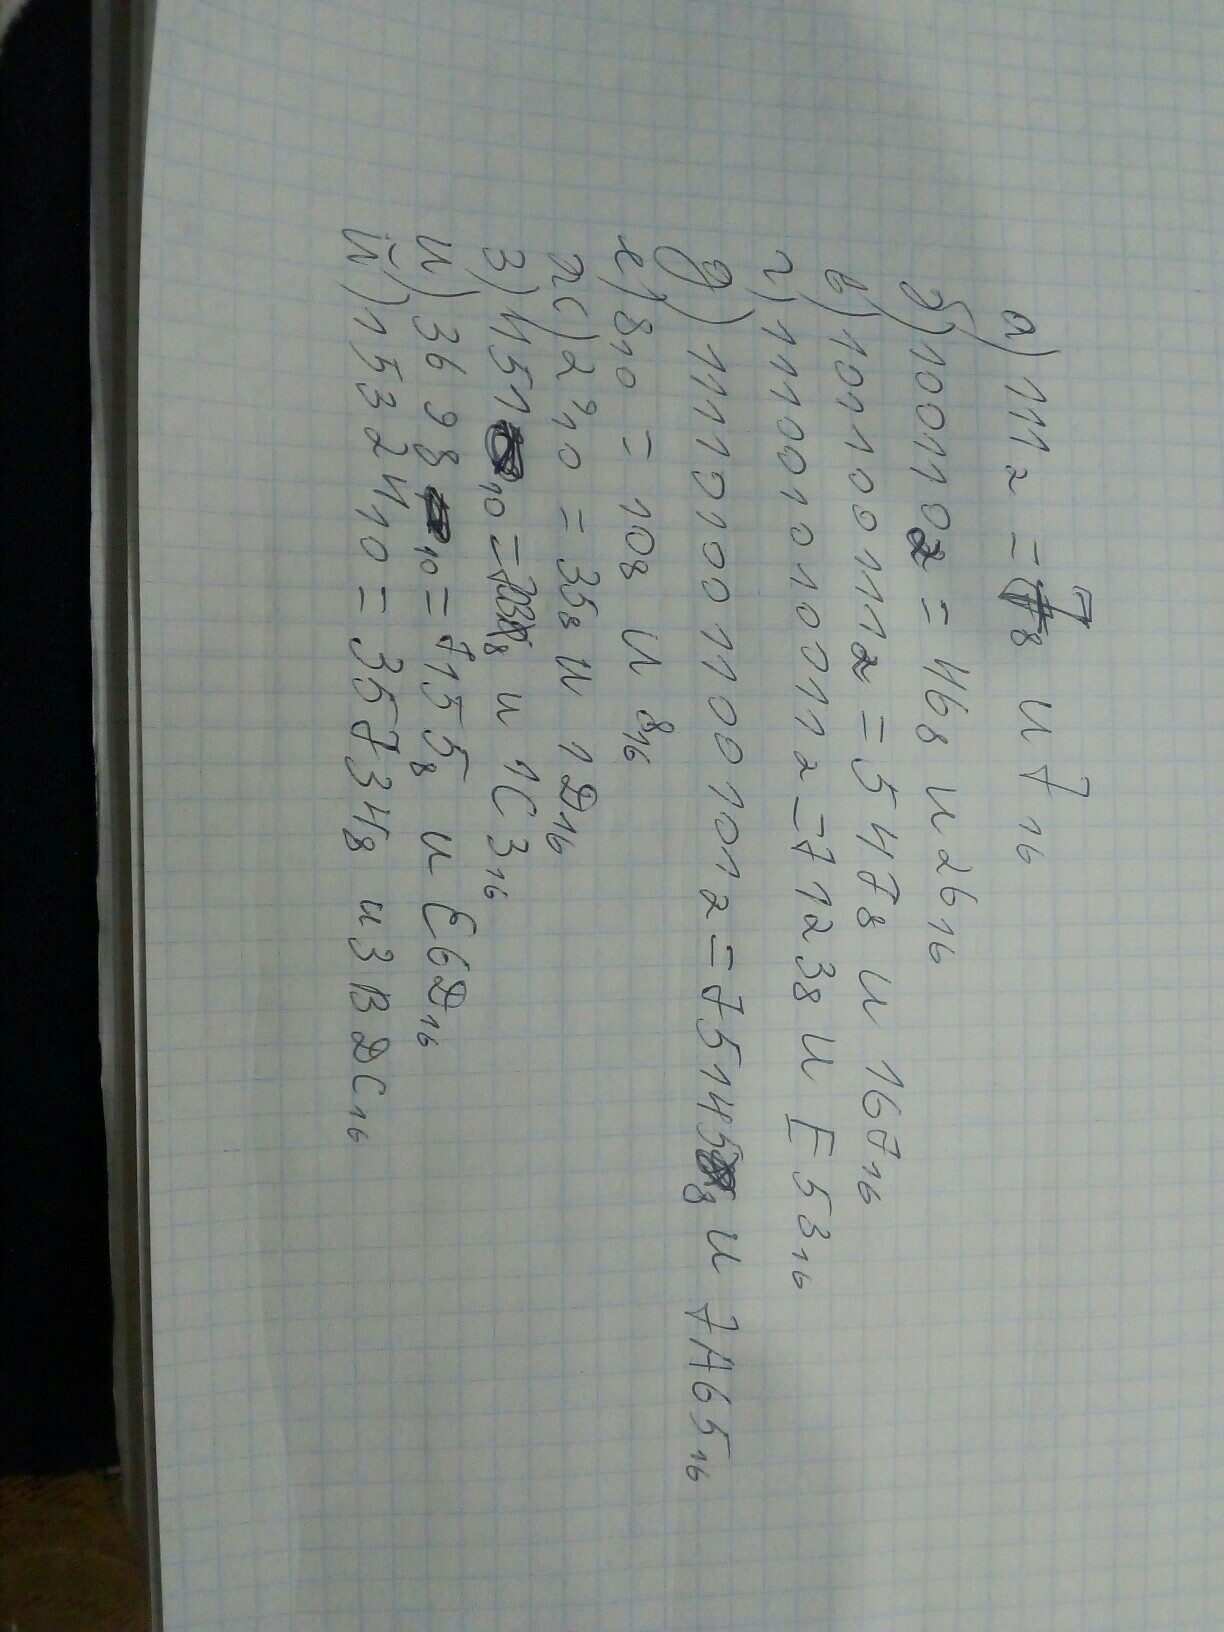 а) 111₂ = 7₈ и 7₁₆
б) 100110₂ = 46₈ и 26₁₆
в) 101100111₂ = 547₈ и 167₁₆
г) 111001010011₂ = 7123₈ и E53₁₆
д) 111101001100101₂ = 75145₈ и 7A65₁₆
е) 8₁₀ = 10₈ и 8₁₆
ж) 29₁₀ = 35₈ и 1D₁₆
з) 451₁₀ = 703₈ и 1C3₁₆
и) 3698₁₀ = 7155₈ и E6D₁₆
й) 15324₁₀ = 35734₈ и 3BDC₁₆